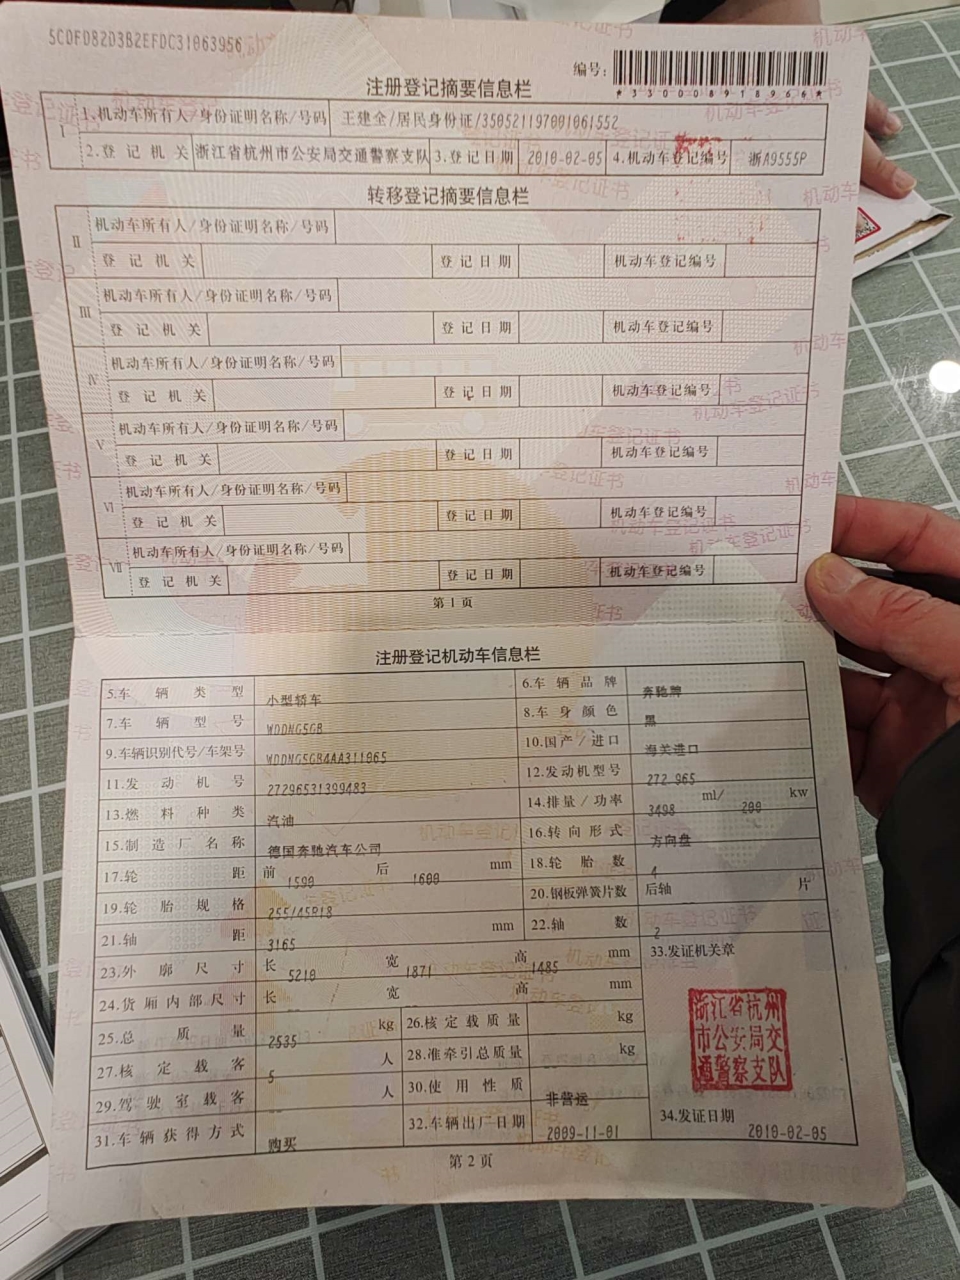 5CDFD82D3B2EFDC31063956
编号:
*330008918966*
注册登记摘要信息栏
I 1.机动车所有人/身份证明名称/号码 王建全/居民身份证/350521197001061552
2.登记机关 浙江省杭州市公安局交通警察支队 3.登记日期 2010-02-05 4.机动车登记编号 浙A9555P
转移登记摘要信息栏
II 机动车所有人/身份证明名称/号码
登记机关 登记日期 机动车登记编号
III 机动车所有人/身份证明名称/号码
登记机关 登记日期 机动车登记编号
IV 机动车所有人/身份证明名称/号码
登记机关 登记日期 机动车登记编号
V 机动车所有人/身份证明名称/号码
登记机关 登记日期 机动车登记编号
VI 机动车所有人/身份证明名称/号码
登记机关 登记日期 机动车登记编号
VII 机动车所有人/身份证明名称/号码
登记机关 登记日期 机动车登记编号
第1页
注册登记机动车信息栏
5.车辆类型 小型轿车 6.车辆品牌 奔驰牌
7.车辆型号 WDDNG5GB 8.车身颜色 黑
9.车辆识别代号/车架号 WDDNG5GB4AA311065 10.国产/进口 海关进口
11.发动机号 27296531399483 12.发动机型号 272 965
13.燃料种类 汽油 14.排量/功率 3498 ml/ 200 kw
15.制造厂名称 德国奔驰汽车公司 16.转向形式 方向盘
17.轮距 前 1590 后 1600 mm 18.轮胎数 4
19.轮胎规格 255/45R18 20.钢板弹簧片数 后轴 片
21.轴距 3165 mm 22.轴数 2
23.外廓尺寸 长 5210 宽 1871 高 1485 mm 33.发证机关章
24.货厢内部尺寸 长 宽 高 mm
25.总质量 2535 kg 26.核定载质量 kg
27.核定载客 5 人 28.准牵引总质量 kg
29.驾驶室载客 人 30.使用性质 非营运
31.车辆获得方式 购买 32.车辆出厂日期 2009-11-01 34.发证日期 2010-02-05
浙江省杭州
市公安局交
通警察支队
第2页